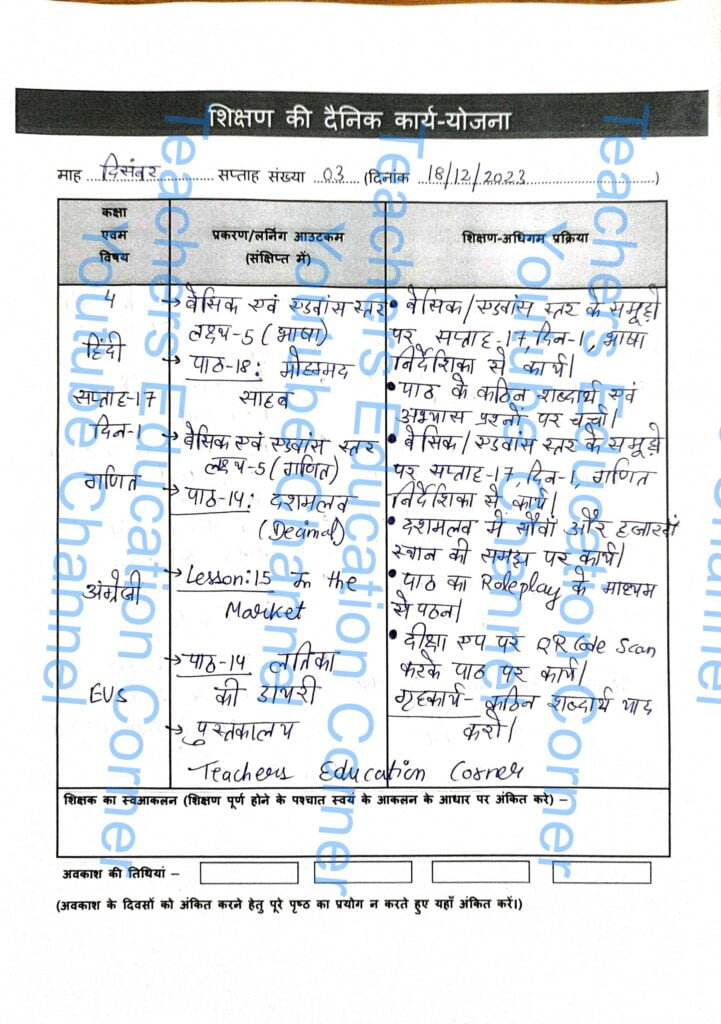 शिक्षण की दैनिक कार्य-योजना
माह दिसंबर सप्ताह संख्या 03 (दिनांक 18/12/2023)
कक्षा
एवम
विषय
प्रकरण/लर्निंग आउटकम
(संक्षिप्त में)
शिक्षण-अधिगम प्रक्रिया
4
हिंदी
सप्ताह-17
दिन-1
गणित
अंग्रेजी
EVS
→ बेसिक एवं एडवांस स्तर
लक्ष्य-5 (भाषा)
→ पाठ-18: मोहम्मद
साहब
→ बेसिक एवं एडवांस स्तर
लक्ष्य-5 (गणित)
→ पाठ-14: दशमलव
(Decimal)
→ Lesson:15 In the
Market
→ पाठ-14 लतिका
की डायरी
→ पुस्तकालय
• बेसिक/एडवांस स्तर के समूहों
पर सप्ताह-17, दिन-1, भाषा
निर्देशिका से कार्य।
• पाठ के कठिन शब्दार्थ एवं
अभ्यास प्रश्नों पर चर्चा।
• बेसिक/एडवांस स्तर के समूहों
पर सप्ताह-17, दिन-1, गणित
निर्देशिका से कार्य।
• दशमलव में सौवाँ और हजारवाँ
स्थान की समझ पर कार्य।
• पाठ का Roleplay के माध्यम
से पठन।
• दीक्षा एप पर QR Code Scan
करके पाठ पर कार्य।
गृहकार्य- कठिन शब्दार्थ याद
करो।
Teachers Education Corner
शिक्षक का स्वआकलन (शिक्षण पूर्ण होने के पश्चात स्वयं के आकलन के आधार पर अंकित करे) –
अवकाश की तिथियां –
(अवकाश के दिवसों को अंकित करने हेतु पूरे पृष्ठ का प्रयोग न करते हुए यहाँ अंकित करें।)
Teachers Education Corner
Youtube Channel
Teachers Education Corner
Youtube Channel
Teachers Education Corner
Youtube Channel